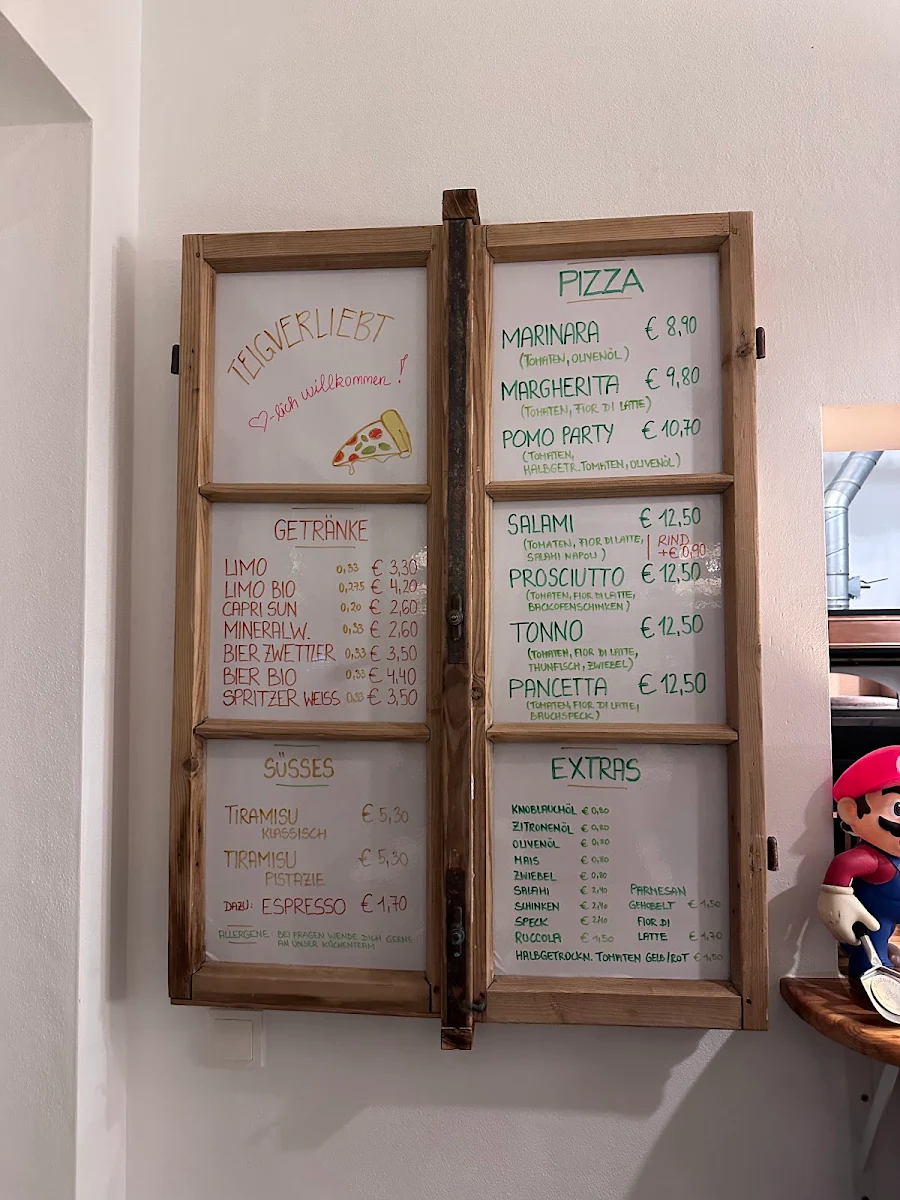 TEIGVERLIEBT
♡-lich willkommen!
GETRÄNKE
LIMO 0,33 € 3,30
LIMO BIO 0,275 € 4,20
CAPRI SUN 0,20 € 2,60
MINERALW. 0,33 € 2,60
BIER ZWETTLER 0,33 € 3,50
BIER BIO 0,33 € 4,40
SPRITZER WEISS 0,33 € 3,50
SÜSSES
TIRAMISU € 5,30
KLASSISCH
TIRAMISU € 5,30
PISTAZIE
DAZU: ESPRESSO € 1,70
ALLERGENE: BEI FRAGEN WENDE DICH GERNE
AN UNSER KÜCHENTEAM
PIZZA
MARINARA € 8,90
(TOMATEN, OLIVENÖL)
MARGHERITA € 9,80
(TOMATEN, FIOR DI LATTE)
POMO PARTY € 10,70
(TOMATEN,
HALBGETR. TOMATEN, OLIVENÖL)
SALAMI € 12,50
(TOMATEN, FIOR DI LATTE, | RIND
SALAMI NAPOLI) +€ 0,90
PROSCIUTTO € 12,50
(TOMATEN, FIOR DI LATTE,
BACKOFENSCHINKEN)
TONNO € 12,50
(TOMATEN, FIOR DI LATTE,
THUNFISCH, ZWIEBEL)
PANCETTA € 12,50
(TOMATEN, FIOR DI LATTE,
BAUCHSPECK)
EXTRAS
KNOBLAUCHÖL € 0,80
ZITRONENÖL € 0,80
OLIVENÖL € 0,80
MAIS € 0,80
ZWIEBEL € 0,80
SALAMI € 2,40
SCHINKEN € 2,40
SPECK € 2,40
RUCCOLA € 1,50
PARMESAN
GEHOBELT € 1,50
FIOR DI
LATTE € 1,70
HALBGETROCKN. TOMATEN GELB/ROT € 1,50